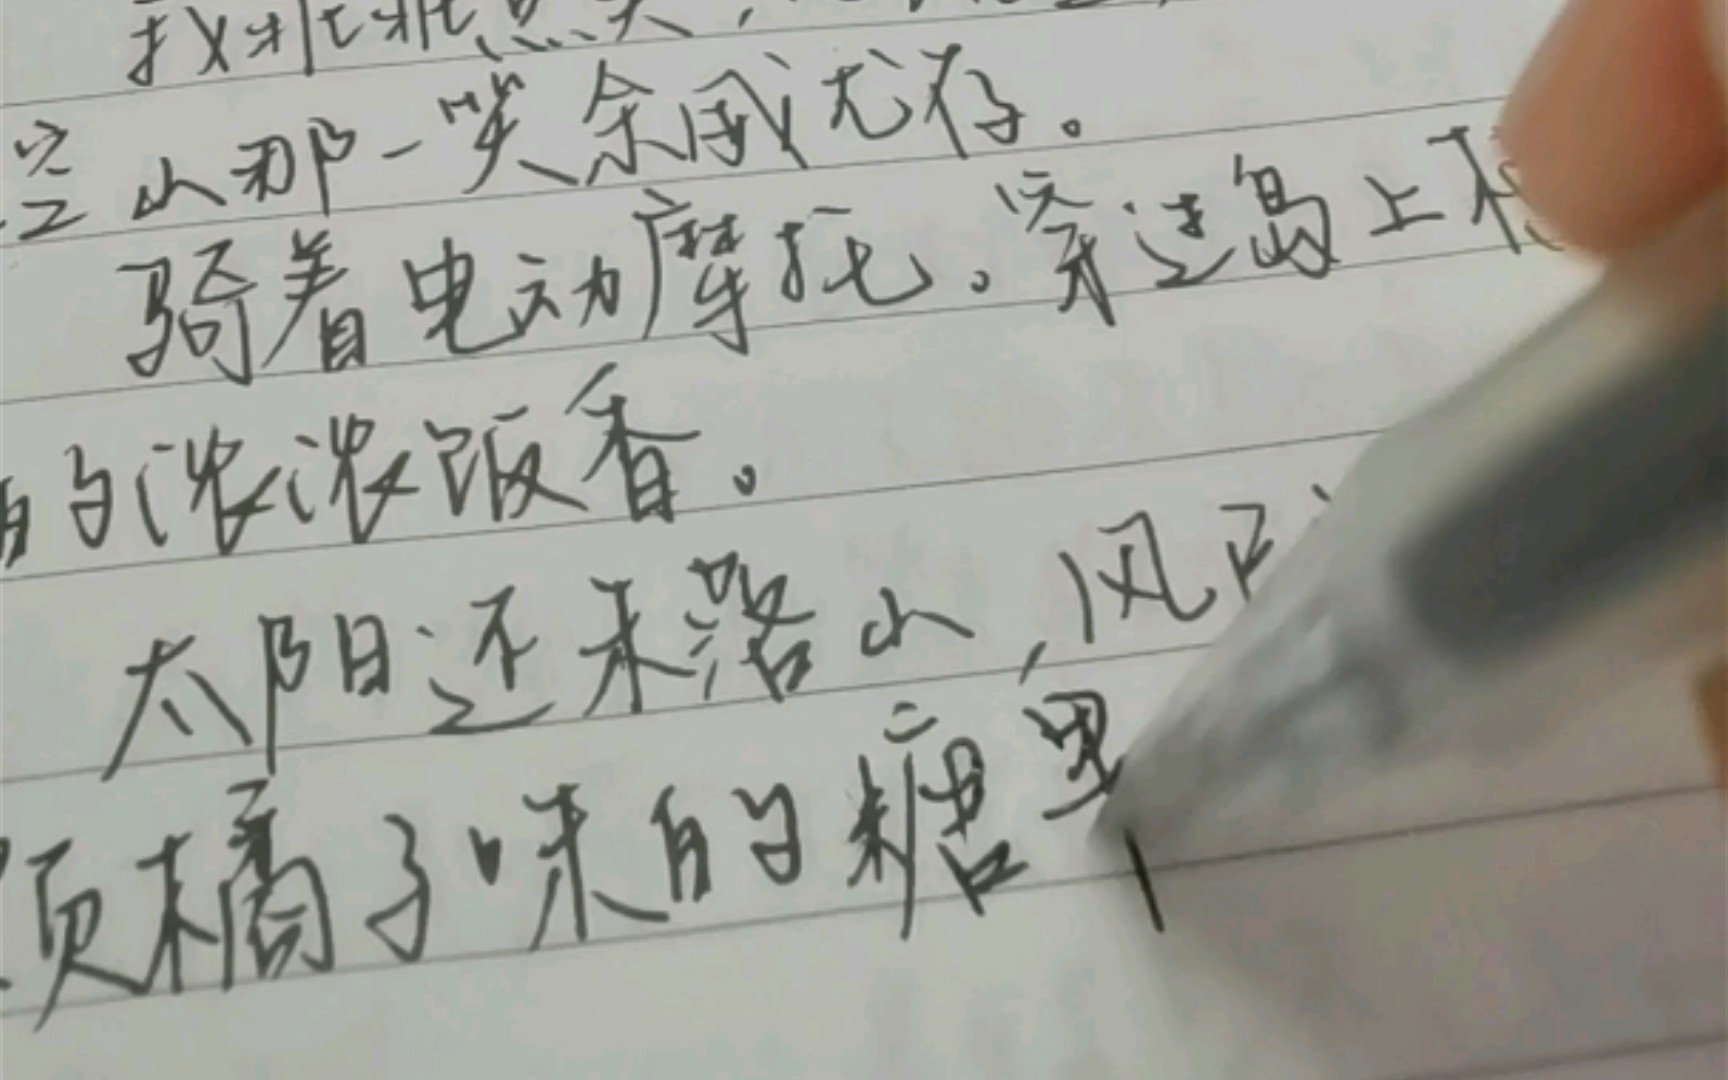 我乖乖点头，
山那一笑余威尤存。
骑着电动摩托。穿过岛上
的浓浓饭香。
太阳还未落山，风
颗橘子味的糖果